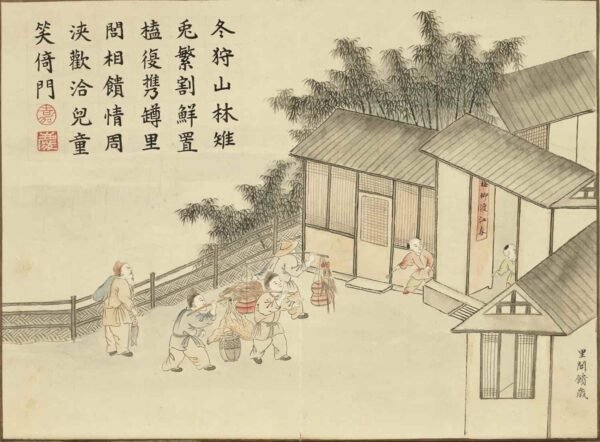 冬狩山林雉
兎繁割鮮置
榼復携罇里
閭相饋情周
浹歡洽兒童
笑倚門
嘉
梅柳渡江春
里閭饋歲